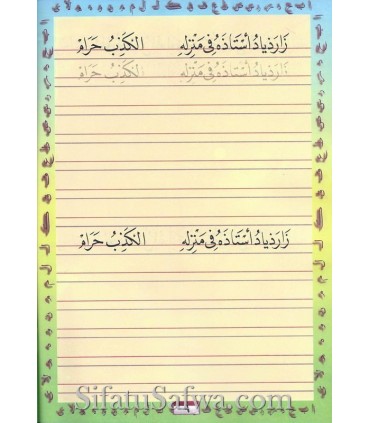 زَارَ زِيَادُ أُسْتَاذَهُ فِي مَنْزِلِهِ الْكَذِبُ حَرَامٌ
زَارَ زِيَادُ أُسْتَاذَهُ فِي مَنْزِلِهِ الْكَذِبُ حَرَامٌ
زَارَ زِيَادُ أُسْتَاذَهُ فِي مَنْزِلِهِ الْكَذِبُ حَرَامٌ
SifatuSafwa.com